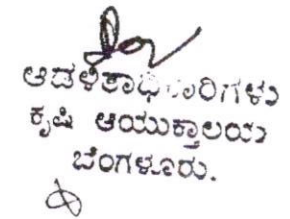 ಆಡಳಿತಾಧಿಕಾರಿಗಳು
ಕೃಷಿ ಆಯುಕ್ತಾಲಯ
ಬೆಂಗಳೂರು.